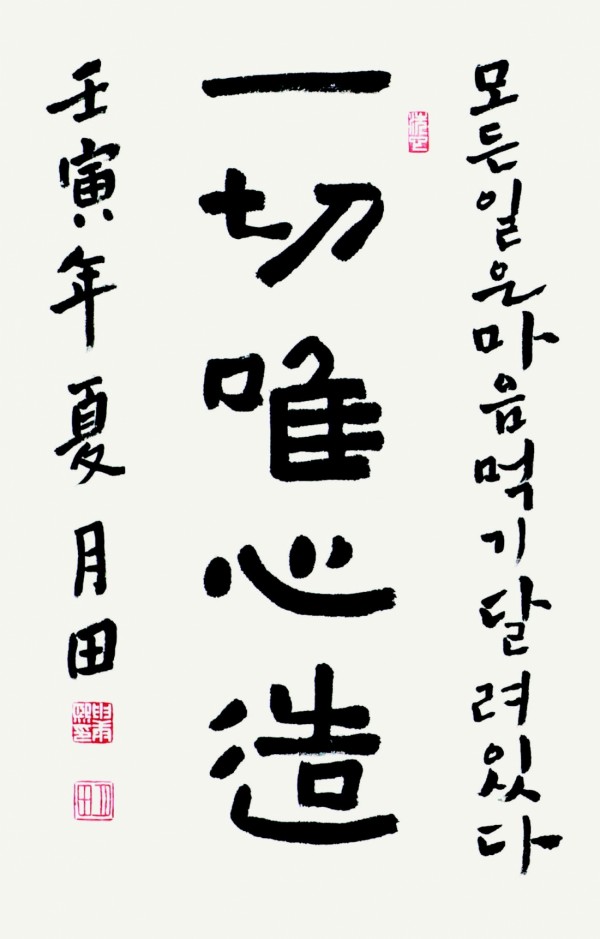 모든일은마음먹기달려있다
一切唯心造
壬寅年夏月田